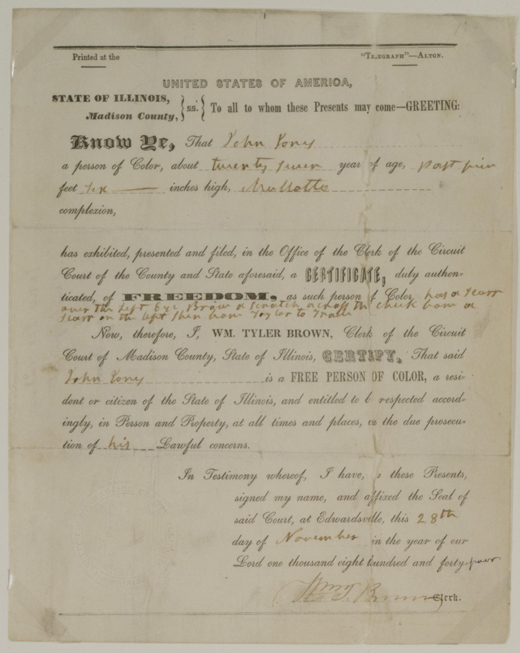 Printed at the "TELEGRAPH"—ALTON.
UNITED STATES OF AMERICA,
STATE OF ILLINOIS,
Madison County, } ss. { To all to whom these Presents may come—GREETING:
Know Ye, That John Jones
a person of Color, about twenty seven year of age, past five
feet six inches high, Mullatto
complexion,
has exhibited, presented and filed, in the Office of the Clerk of the Circuit
Court of the County and State aforesaid, a CERTIFICATE, duly authen-
ticated, of FREEDOM, as such person of Color has a Scarr
over the left Eye Brow a Scratch across the cheek bone a
Scarr on the left Shin bone
Now, therefore, I, WM. TYLER BROWN, Clerk of the Circuit
Court of Madison County, State of Illinois, CERTIFY, That said
John Jones is a FREE PERSON OF COLOR, a resi-
dent or citizen of the State of Illinois, and entitled to be respected accord-
ingly, in Person and Property, at all times and places, in the due prosecu-
tion of his Lawful concerns.
In Testimony whereof, I have, to these Presents,
signed my name, and affixed the Seal of
said Court, at Edwardsville, this 28th
day of November in the year of our
Lord one thousand eight hundred and forty-four
Wm T. Brown Clerk.